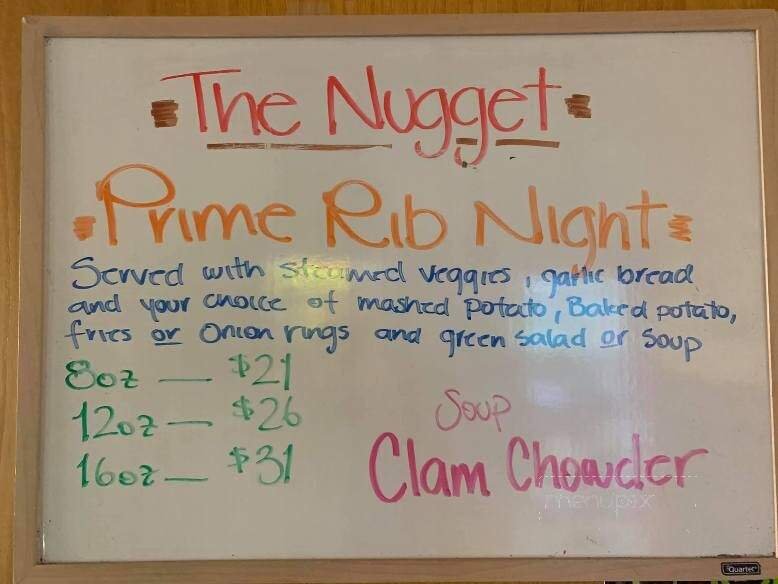 The Nugget
Prime Rib Night
Served with steamed veggies, garlic bread
and your choice of mashed potato, Baked potato,
fries or onion rings and green salad or soup
8oz — $21
12oz — $26
16oz — $31
Soup
Clam Chowder
menupix
Quartet